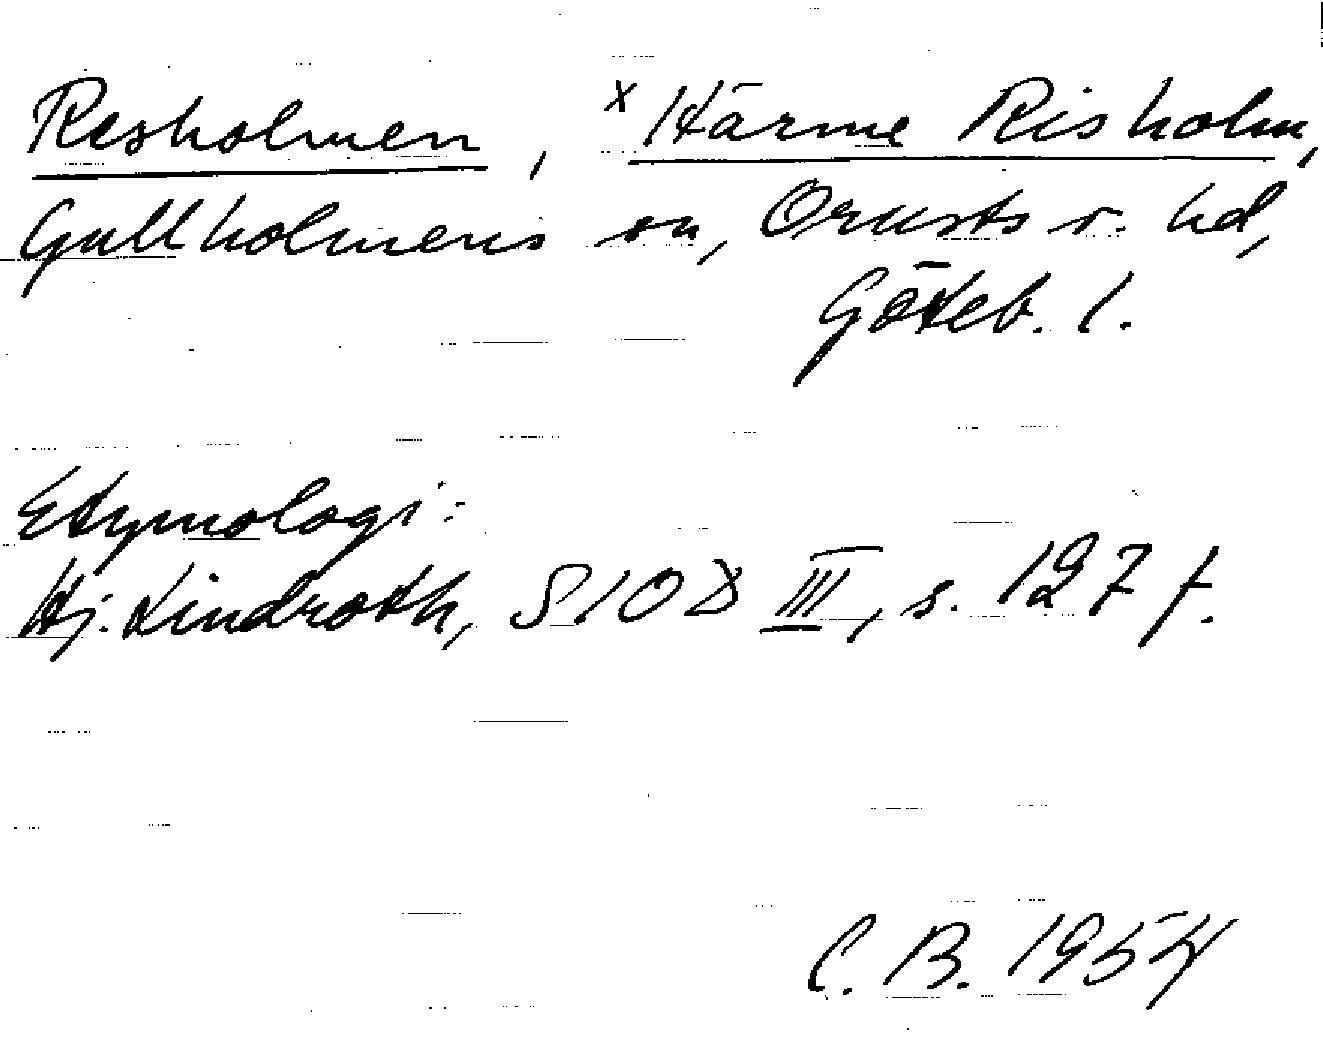 Resholmen, x Härme Risholm,
Gullholmens sn, Orusts v. hd,
Göteb. l.
Etymologi:
Hj. Lindroth, SIOD III, s. 127 f.
C. B. 1954